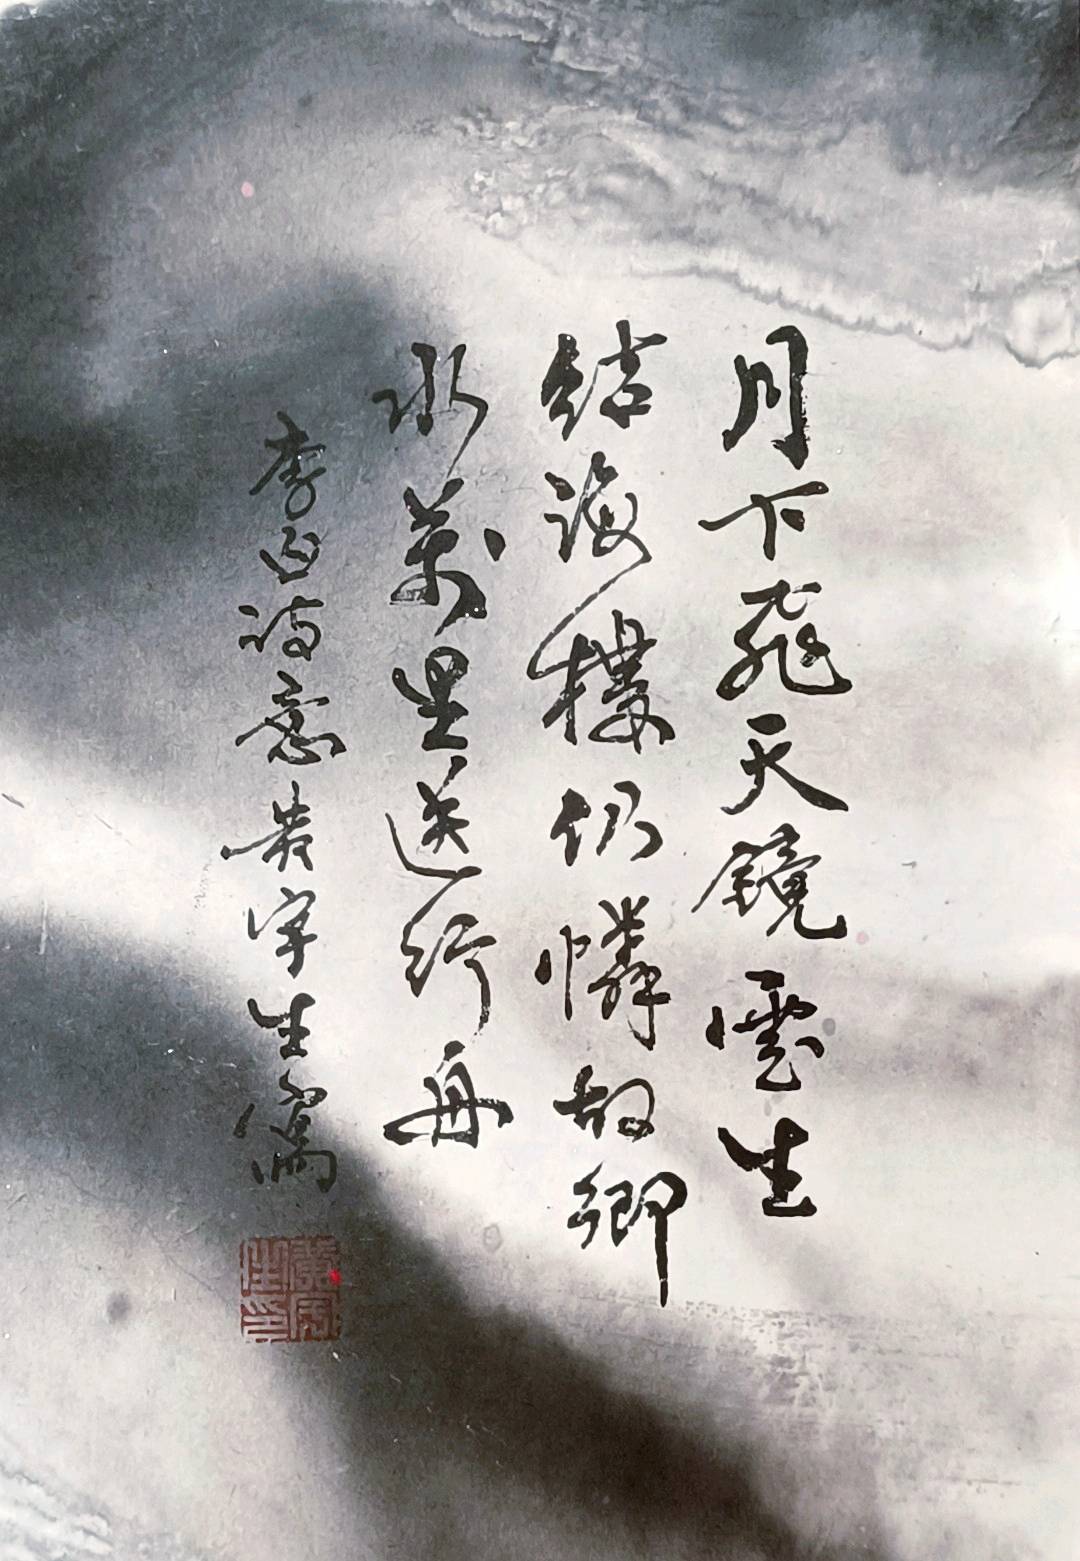 月下飛天鏡雲生
結海樓仍憐故鄉
水萬里送行舟
李白诗意黄宇生寫